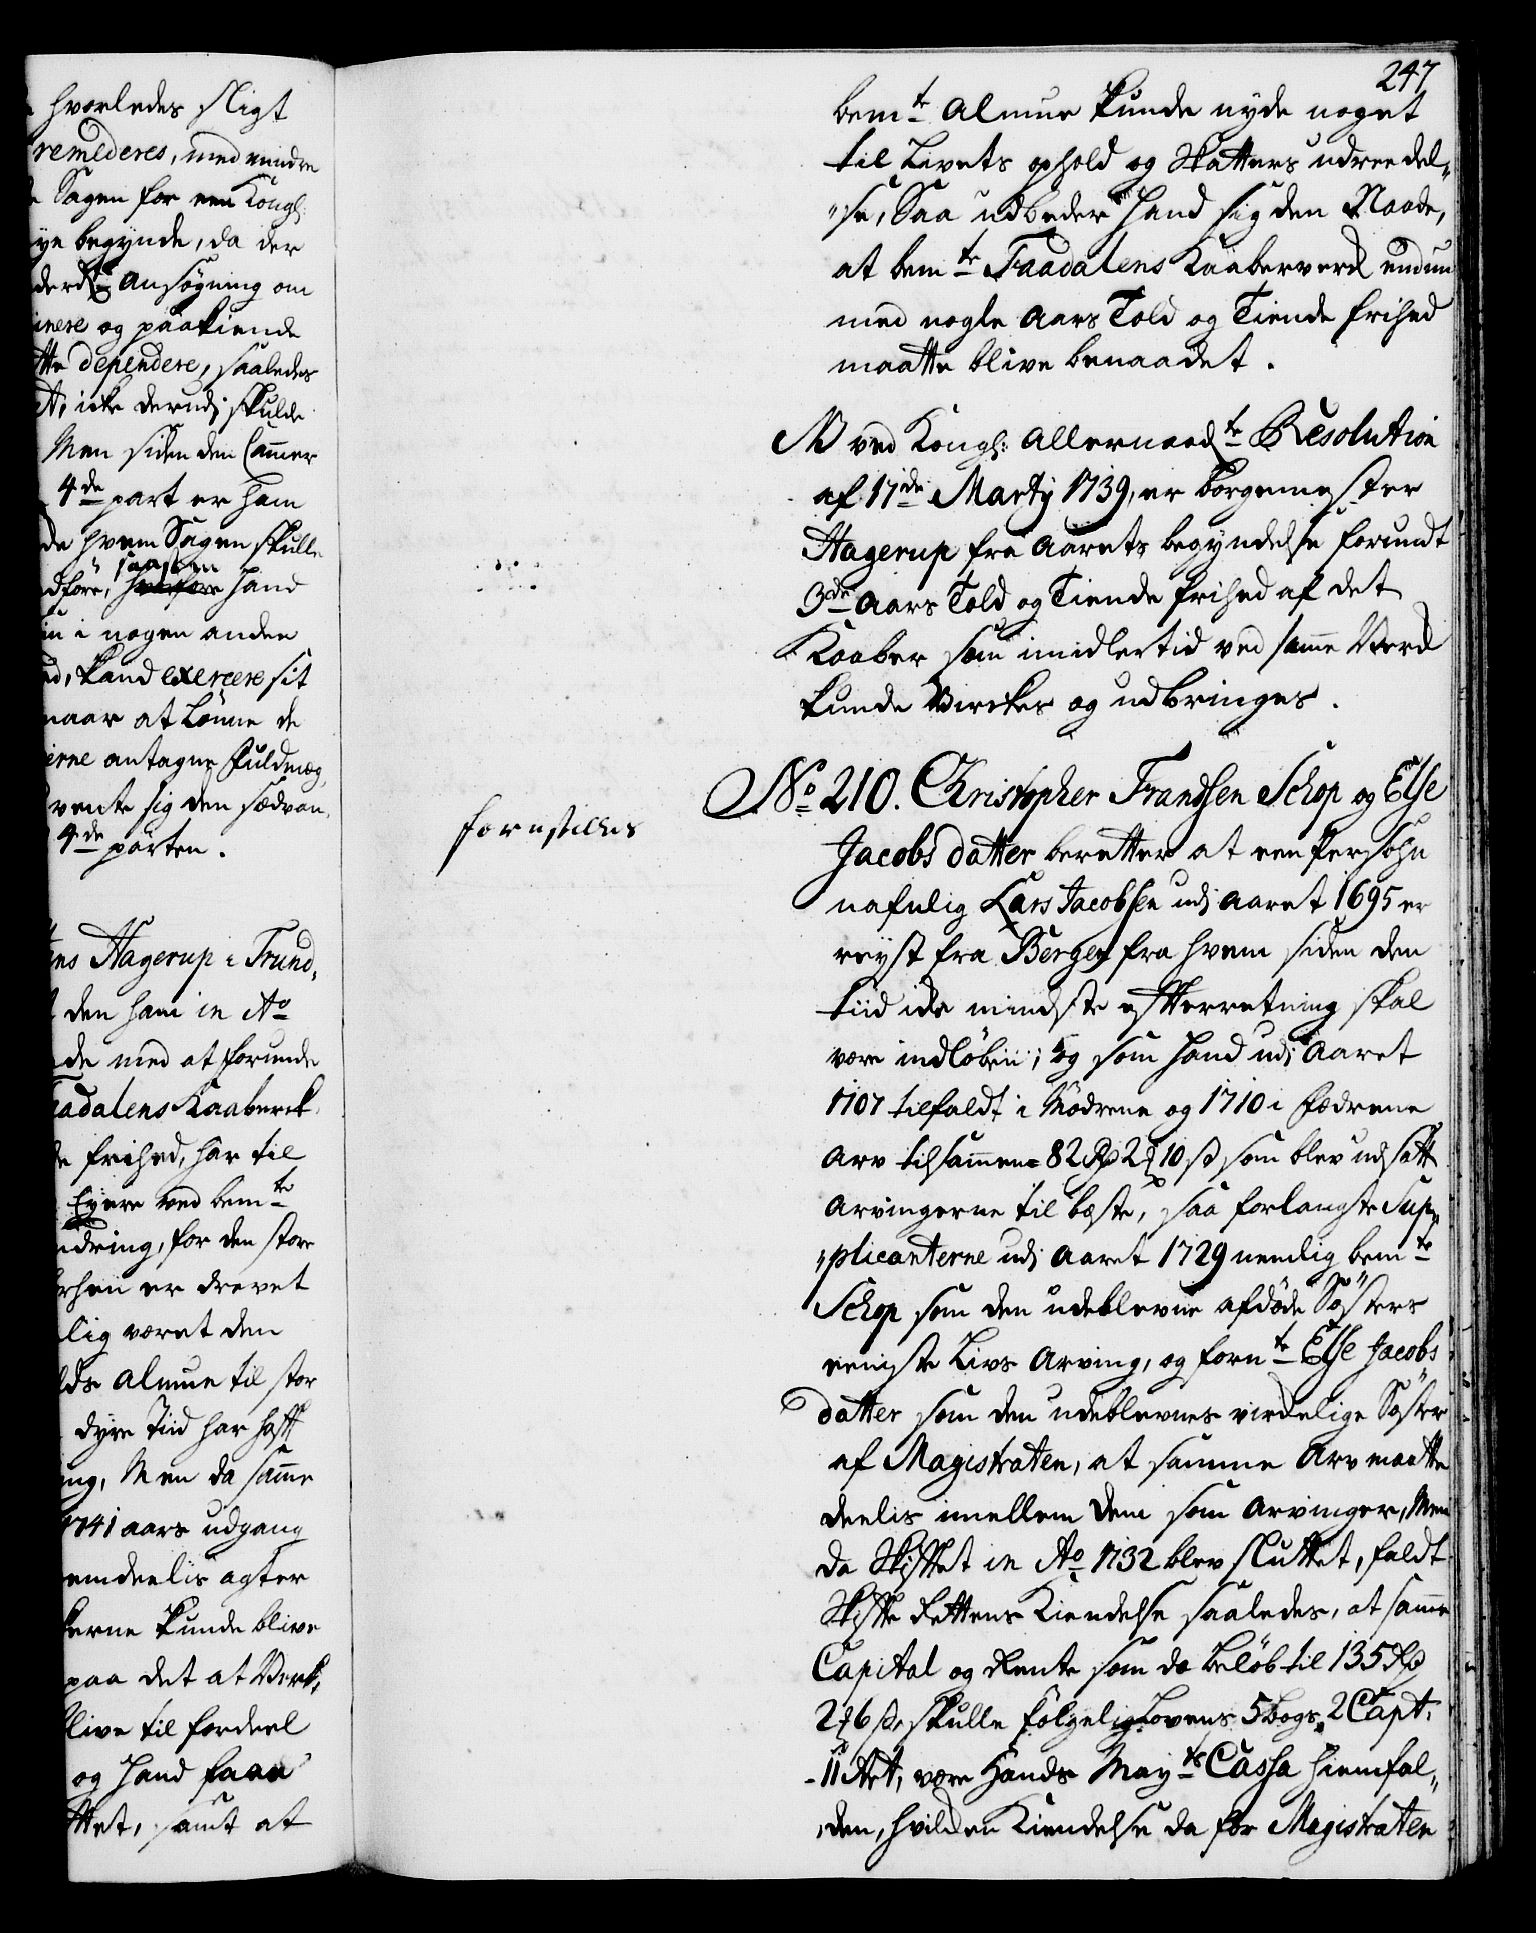 hvorledes sligt
remederes, med mindre
Sagen for een Kongl:
ye begynde, da der
ansøgning om
inere og paakiende
tte dependere, saaledes
icke derudj skulde
Men siden den Cammer
4de part er ham
de hvem Sagen skulle
saasom
dføre, hvorfore hand
i nogen anden
kand exercere sit
naar at lønne de
erne antagne fuldmæg,
vente sig den sædvan,
4de parten.
ns Hagerup i Trund,
den ham in Ao
de med at forunde
aadalens Kaaberk
frihed, har til
Eyere ved bemte
dring, for den store
rhen er drevet
lig været den
lds Almue til stor
dyre Tiid har hafft
ng, Men da samme
1741 aars udgang
emdeelis agter
kerne kunde blive
paa det at Verk,
live til fordeel
og hand faaer
ttet, samt at
247
bemte Almue kunde nyde noget
til Livets ophold og Skatters udreedel„
„se, Saa udbeder hand sig den Naade,
at bemte Faadalens Kaaberverck endnu
med nogle aars Told og Tiende frihed
maatte blive benaadet.
N ved Kongl: Allernaadste Resolution
af 17de Martij 1739, er borgemester
Hagerup fra aarets begyndelse forundt
3de aars Told og Tiende frihed af det
Kaaber som imidlertid ved samme Verck
kunde Virckes og udbringes.
fornstilles
No 210. Christopher Frandsen Schop og Else
Jacobs datter beretter at een Persohn
nafnlig Lars Jacobsen udj aaret 1695 er
reyst fra Bergen fra hvem siden den
tiid ide mindste efterretning skal
være indløben; og som hand udj aaret
1707 tilfaldt i Mødrene og 1710 i Fædrene
Arv tilsammen 82 Rd 2 10 s som blev udsatt
Arvingerne til beste, saa forlangte Sup„
„plicanterne udj aaret 1729 nemlig bemte
Schop som den udeblevne afdøde Søsters
eeniste Livs Arving, og fornte Else Jacobs
datter som den udeblevnes virckelige Søster
af Magistraten, at samme Arv maatte
deelis imellem dem som Arvinger, Men
da Skifftet in Ao 1732 blev sluttet, faldt
Skiffte Rettens Kiendelse saaledes, at samme
Capital og Rente som da beløb til 135 Rd
2 6 s, skulle følgelig Lovens 5 bogs, 2 Capt.
11 Art, være Hands Mayts Cassa hiemfal„
„den, hvilcken Kiendelse da for Magistraten